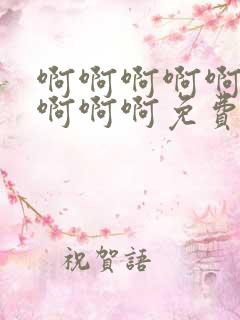 啊啊啊啊啊
啊啊啊免費
祝賀語